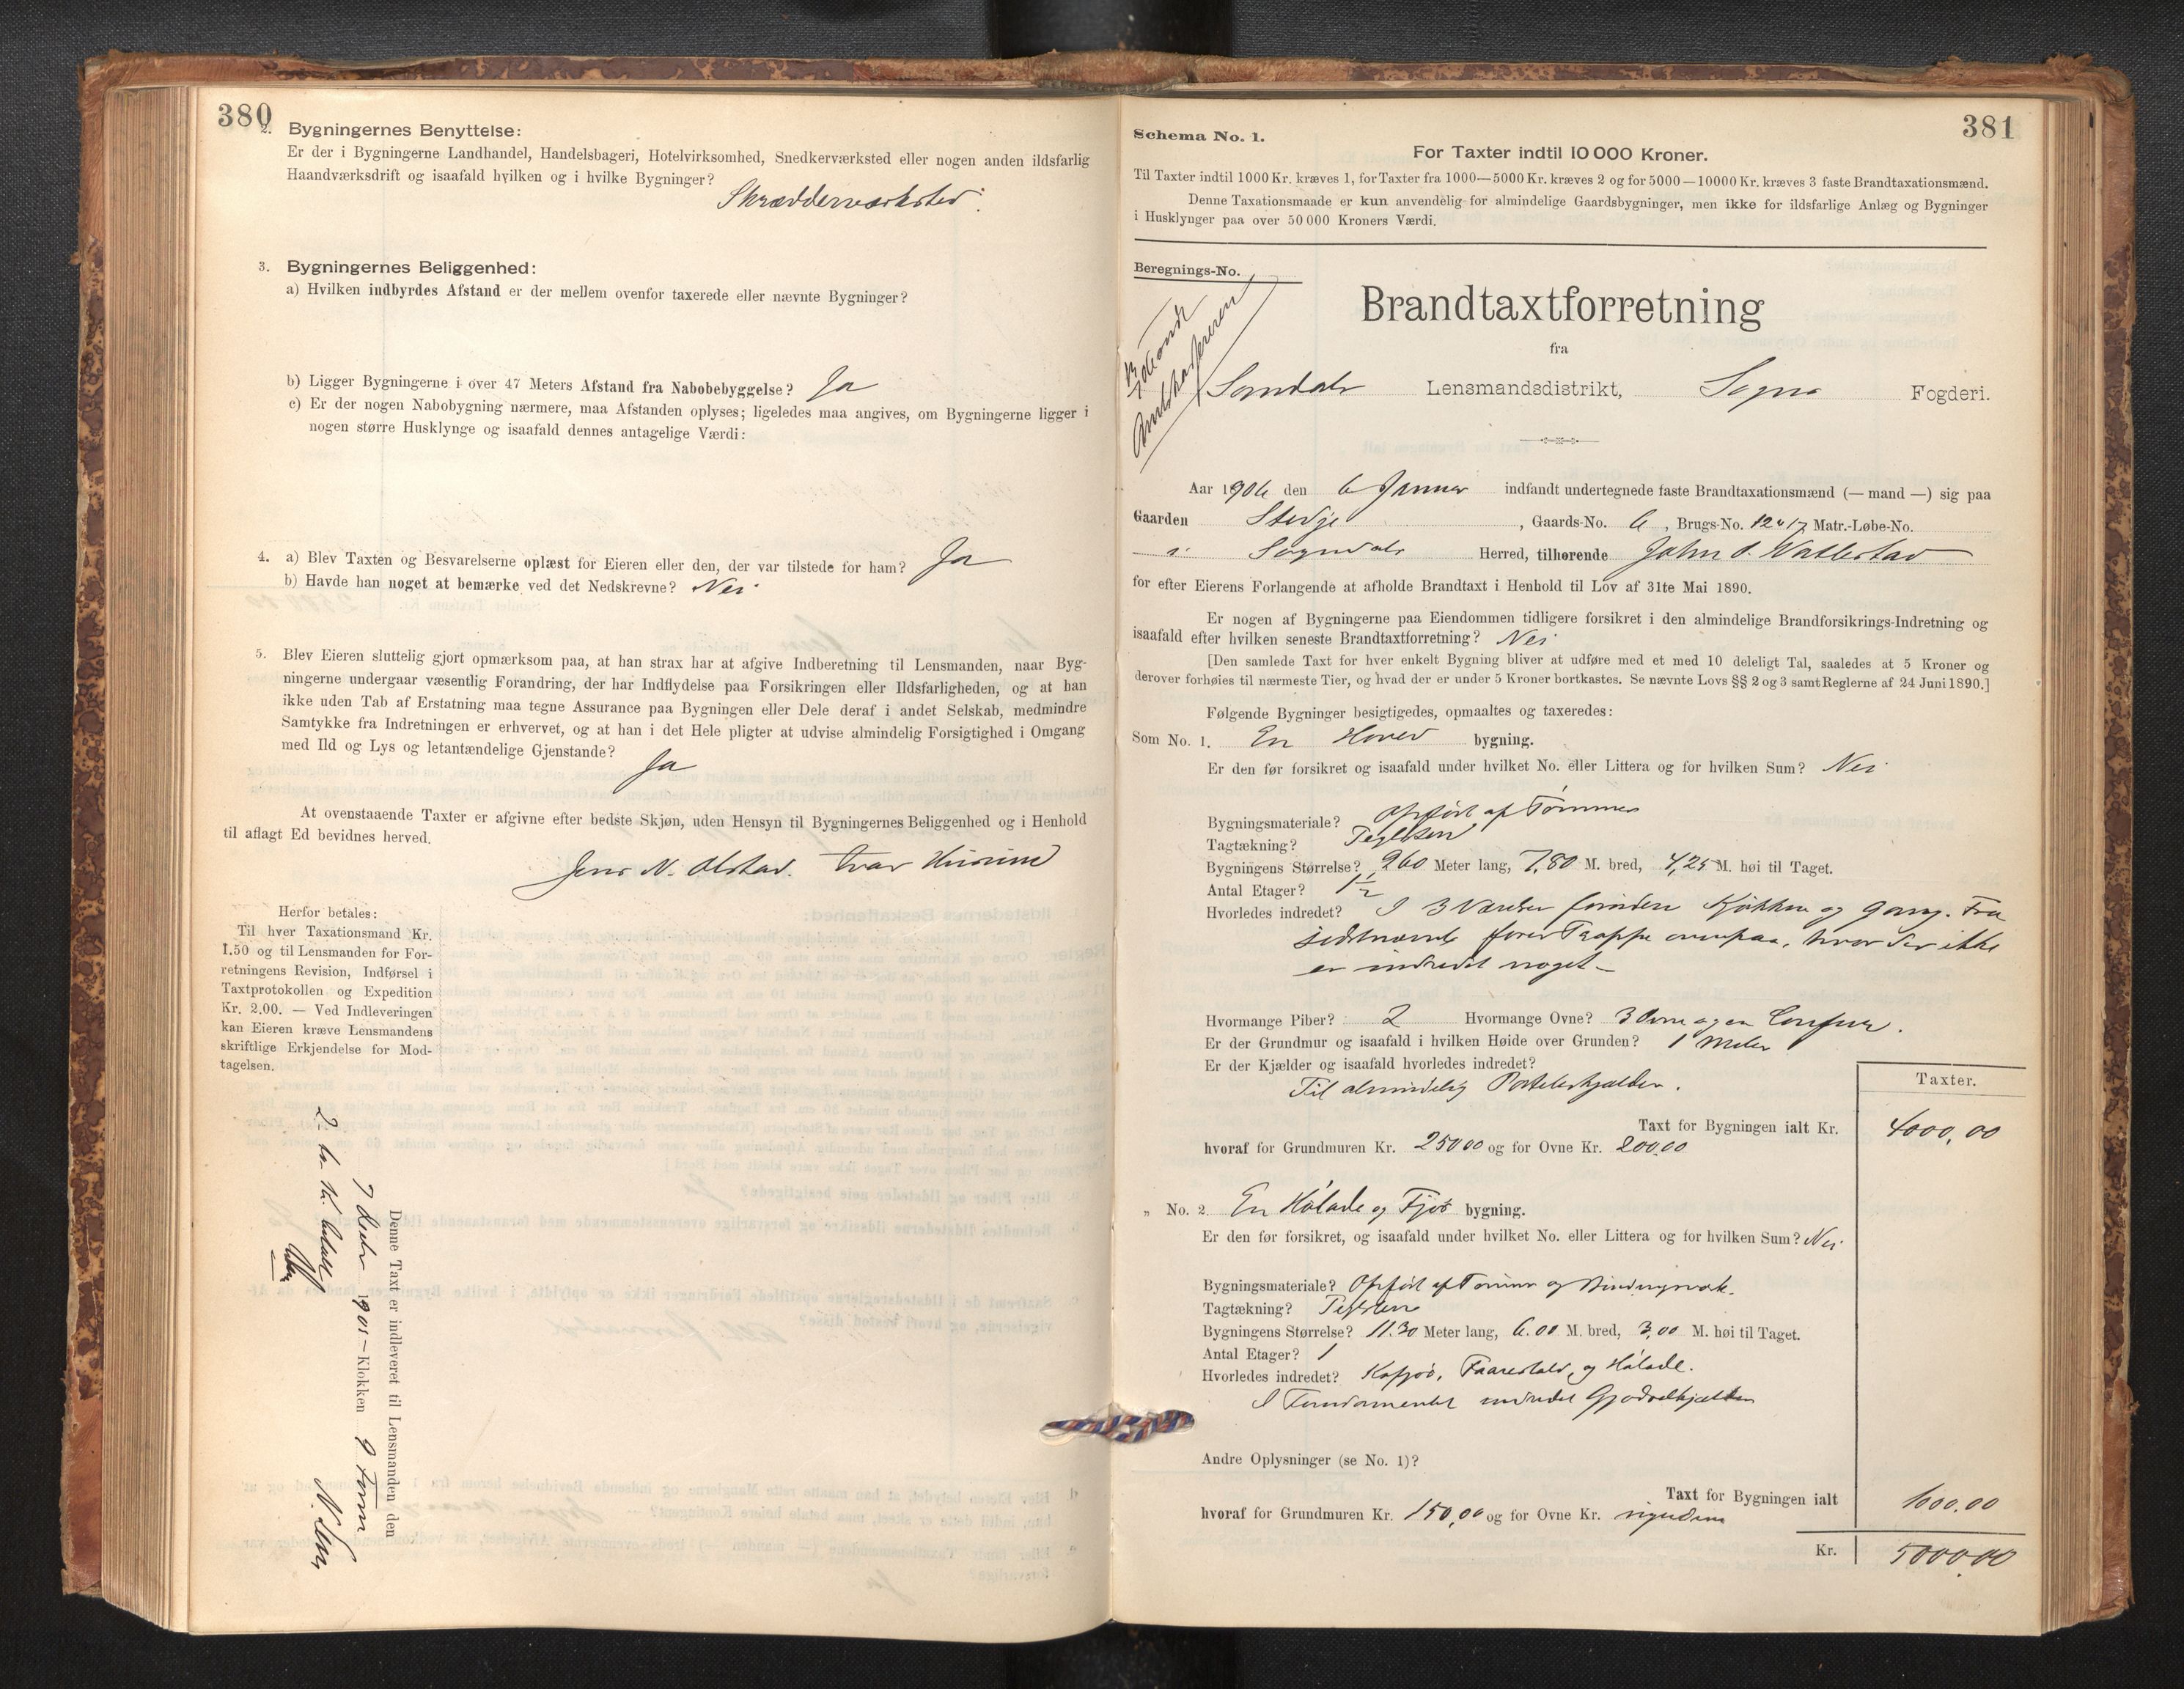 380
2. Bygningernes Benyttelse:
Er der i Bygningerne Landhandel, Handelsbageri, Hotelvirksomhed, Snedkerværksted eller nogen anden ildsfarlig
Haandværksdrift og isaafald hvilken og i hvilke Bygninger?
Skrædderværksted.
3. Bygningernes Beliggenhed:
a) Hvilken indbyrdes Afstand er der mellem ovenfor taxerede eller nævnte Bygninger?
b) Ligger Bygningerne i over 47 Meters Afstand fra Nabobebyggelse? Ja
c) Er der nogen Nabobygning nærmere, maa Afstanden oplyses; ligeledes maa angives, om Bygningerne ligger i
nogen større Husklynge og isaafald dennes antagelige Værdi:
4. a) Blev Taxten og Besvarelserne oplæst for Eieren eller den, der var tilstede for ham? Ja
b) Havde han noget at bemærke ved det Nedskrevne? Nei
5. Blev Eieren sluttelig gjort opmærksom paa, at han strax har at afgive Indberetning til Lensmanden, naar Byg-
ningerne undergaar væsentlig Forandring, der har Indflydelse paa Forsikringen eller Ildsfarligheden, og at han
ikke uden Tab af Erstatning maa tegne Assurance paa Bygningen eller Dele deraf i andet Selskab, medmindre
Samtykke fra Indretningen er erhvervet, og at han i det Hele pligter at udvise almindelig Forsigtighed i Omgang
med Ild og Lys og letantændelige Gjenstande?
Ja
At ovenstaaende Taxter er afgivne efter bedste Skjøn, uden Hensyn til Bygningernes Beliggenhed og i Henhold
til aflagt Ed bevidnes herved.
Jens N. Olstad. Ivar
Herfor betales:
Til hver Taxationsmand Kr.
1.50 og til Lensmanden for For-
retningens Revision, Indførsel i
Taxtprotokollen og Expedition
Kr. 2.00. — Ved Indleveringen
kan Eieren kræve Lensmandens
skriftlige Erkjendelse for Mod-
tagelsen.
Denne Taxt er indleveret til Lensmanden den
7 1905 — Klokken 9 Form
2 Kr.
381
Schema No. 1.
For Taxter indtil 10 000 Kroner.
Til Taxter indtil 1000 Kr. kræves 1, for Taxter fra 1000—5000 Kr. kræves 2 og for 5000—10000 Kr. kræves 3 faste Brandtaxationsmænd.
Denne Taxationsmaade er kun anvendelig for almindelige Gaardsbygninger, men ikke for ildsfarlige Anlæg og Bygninger
i Husklynger paa over 50 000 Kroners Værdi.
Beregnings-No.
Brandtaxtforretning
fra
Sogndals Lensmandsdistrikt, Sogns Fogderi.
Aar 1906 den 6 Januar indfandt undertegnede faste Brandtaxationsmænd (— mand —) sig paa
Gaarden Stedje, Gaards-No. 6, Brugs-No. 12 & 17 Matr.-Løbe-No.
i Sogndals Herred, tilhørende John O. Vallestad
for efter Eierens Forlangende at afholde Brandtaxt i Henhold til Lov af 31te Mai 1890.
Er nogen af Bygningerne paa Eiendommen tidligere forsikret i den almindelige Brandforsikrings-Indretning og
isaafald efter hvilken seneste Brandtaxtforretning? Nei
[Den samlede Taxt for hver enkelt Bygning bliver at udføre med et med 10 deleligt Tal, saaledes at 5 Kroner og
derover forhøies til nærmeste Tier, og hvad der er under 5 Kroner bortkastes. Se nævnte Lovs §§ 2 og 3 samt Reglerne af 24 Juni 1890.]
Følgende Bygninger besigtigedes, opmaaltes og taxeredes:
Som No. 1. En Hoved bygning.
Er den før forsikret og isaafald under hvilket No. eller Littera og for hvilken Sum? Nei
Bygningsmateriale? Opført af Tømmer
Tagtækning? Teglsten
Bygningens Størrelse? 9.60 Meter lang, 7,80 M. bred, 4,25 M. høi til Taget.
Antal Etager? 1½
Hvorledes indredet? I 3 Værelser foruden Kjøkken og Gang. Fra
sidstnævnte fører Trappe ovenpaa, hvor der ikke
er indredet noget —
Hvormange Piber? 2 Hvormange Ovne? 3 Ovne og en Comfur.
Er der Grundmur og isaafald i hvilken Høide over Grunden? 1 Meter
Er der Kjælder og isaafald hvorledes indredet?
Til almindelig Poteteskjælder.
Taxter.
Taxt for Bygningen ialt Kr. 4000,00
hvoraf for Grundmuren Kr. 250 00 og for Ovne Kr. 200,00
„ No. 2. En Hølade og Fjøs bygning.
Er den før forsikret, og isaafald under hvilket No. eller Littera og for hvilken Sum? Nei
Bygningsmateriale? Opført af Tømmer og Bindingsværk.
Tagtækning? Teglsten
Bygningens Størrelse? 11.30 Meter lang, 6.00 M. bred, 3,00 M. høi til Taget.
Antal Etager? 1
Hvorledes indredet? Kofjøs, Faarestald, og Hølade.
I Fundamentet indredet Gjødselkjælder
Andre Oplysninger (se No. 1)?
Taxt for Bygningen ialt 1000.00
hvoraf for Grundmuren Kr. 150,00 og for Ovne Kr. ingenting
Kr. 5000,00